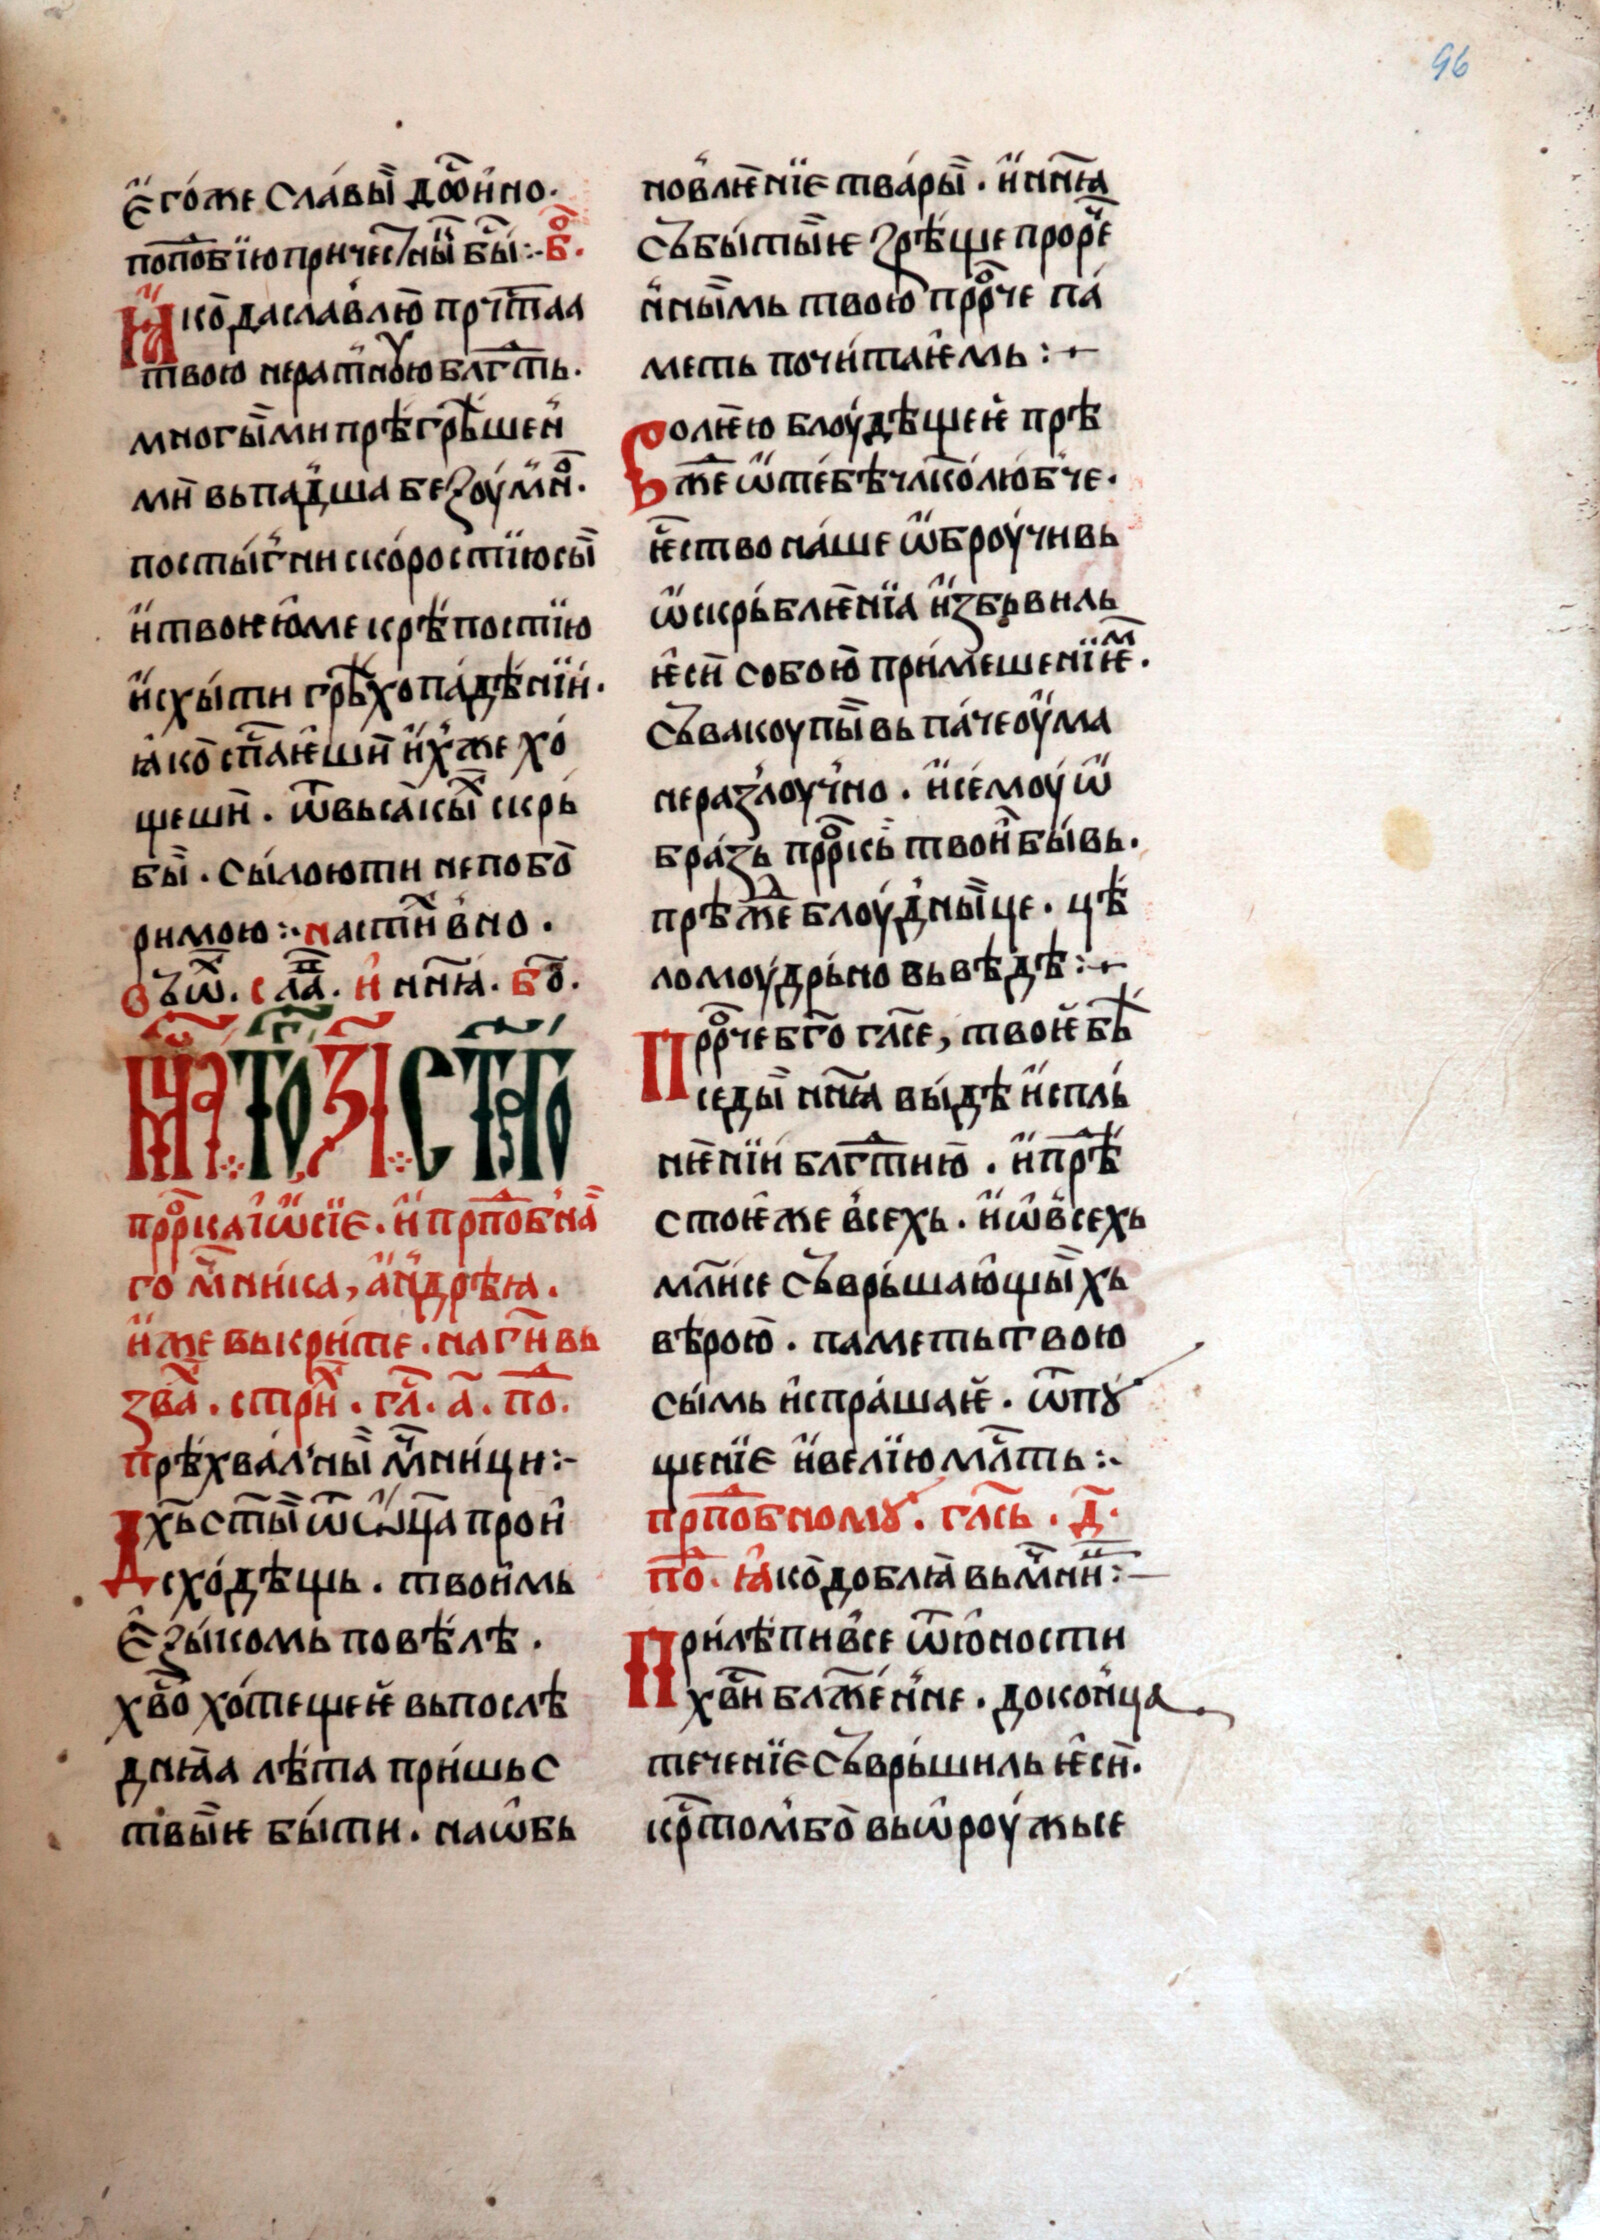 96
Е҆го́же сла́вы̏ досто́и̇но·
поподо́бїю причестны̏ бы́:· Бо҃·
Ꙗ҆ко̀ да славлю̀ прⷱ҇таа
твою нератнꙋю блгⷣть·
многы̏ми прѣгрѣ́шен̏
мѝ вьпа́дша без̾ оу́мно·
посты́гни ско́ростїю сы̏
и҆ твоѥю̑ ме крѣ́постїю
и҆схы́ти грѣ́хопа́дѣнїи́·
ꙗ҆ко̀ спⷭ҇аѥ̑шѝ и҆́хже хо́
щешѝ· ѿ вьса́кы̏х скрь́
бы̏· сы́лою ти непобо̀
римою:· настⷩ҇и в̾но·
въ ѿ· слⷶ· и҆ ннꙗ҃· бо҃·
Мцⷭ҇а то҃ з҃і ст҃го
прⷪ҇рⷪ҇ка і҆ѡ̑сїе· и҆ прпⷣобнⷶ
го мⷱ҇ника, а҆н̾дрѣꙗ·
и҆же вь кри́те· на гⷭ҇и вь
звⷶ· стри́х· гл҃· а҃· по҃·
прѣхва́л̾ны̏ мⷱ҇ни́ци:·
Дх҃ь ст҃ы̏ ѿ ѡ҆ц҃а прои̑
схо́дѣщь· твои̑мь
е҆зы́комь повѣ́лѣ·
хв҃о хо́тещеѥ вь послѣ
днꙗ̑а лѣ́та при́шьс
твы̏ѥ бы́ти· на ѡ̑бь
нов̾лѥ́нїе тва́ры̏· и҆ ннꙗ҃
събы́ты̏ѥ зрѣ́ще прорⷱ҇е
н̾ны̏мь твою прⷪ҇рⷪ҇че па́
меть почи́таѥ̑мь:·
Во́лѥю блоу́дѣщеѥ прѣ
жⷣе ѿ те́бѣ чл҃ко́лю́б̾че·
ѥⷭ҇ство на́ше ѡ̑броу́чивь
ѿ скрь́блѥнїа и҆збь́виль
ѥ̑сѝ собою̀ при́мешенїѥⷨ·
съвакоупы̏вь па́че оу́ма
нераз̾лоу́ч̾но· и҆ се́моу́ ѡ̑
бра́зь прⷪ҇рⷪ҇кь тво́и̏ бы́вь·
прѣжⷣе блоу́д̾ны̏це· цѣ̀
ломоу́дрь́но вьвѣ́дѣ:·
Прⷪ҇рⷪ҇че бг҃о гл҃се, тво́ѥ бѣ̀
седы̏ ннꙗ҃ вы́дѣ и҆спль́
нѥ́нїи́ блгⷣтию̀· и҆ прⷣѣ
стоѥ̑ же в̾сехь· и҆ ѡ̑ в̾сехь
мл҃и́се съврь́шаю̑щы̏хь
вѣ́рою̀· паметь твою
сы́мь и҆спра́шаѥ· ѿпꙋ
щенїе и҆ ве́лїю млⷭ҇ть:·
прпⷣобномꙋ· гл҃сь· д҃·
по҃· ꙗ҆ко̀ доблꙗ̑ вь мⷱ҇ни:·
При́лѣпи в̾се ѿ ю̑ности
хв҃и блⷤе́н̾не· до ко́н̾ца
тече́нїе съврь́шиль ѥ̑сѝ·
крⷭ҇томбо̀ вьѡ̑роу́жьсе